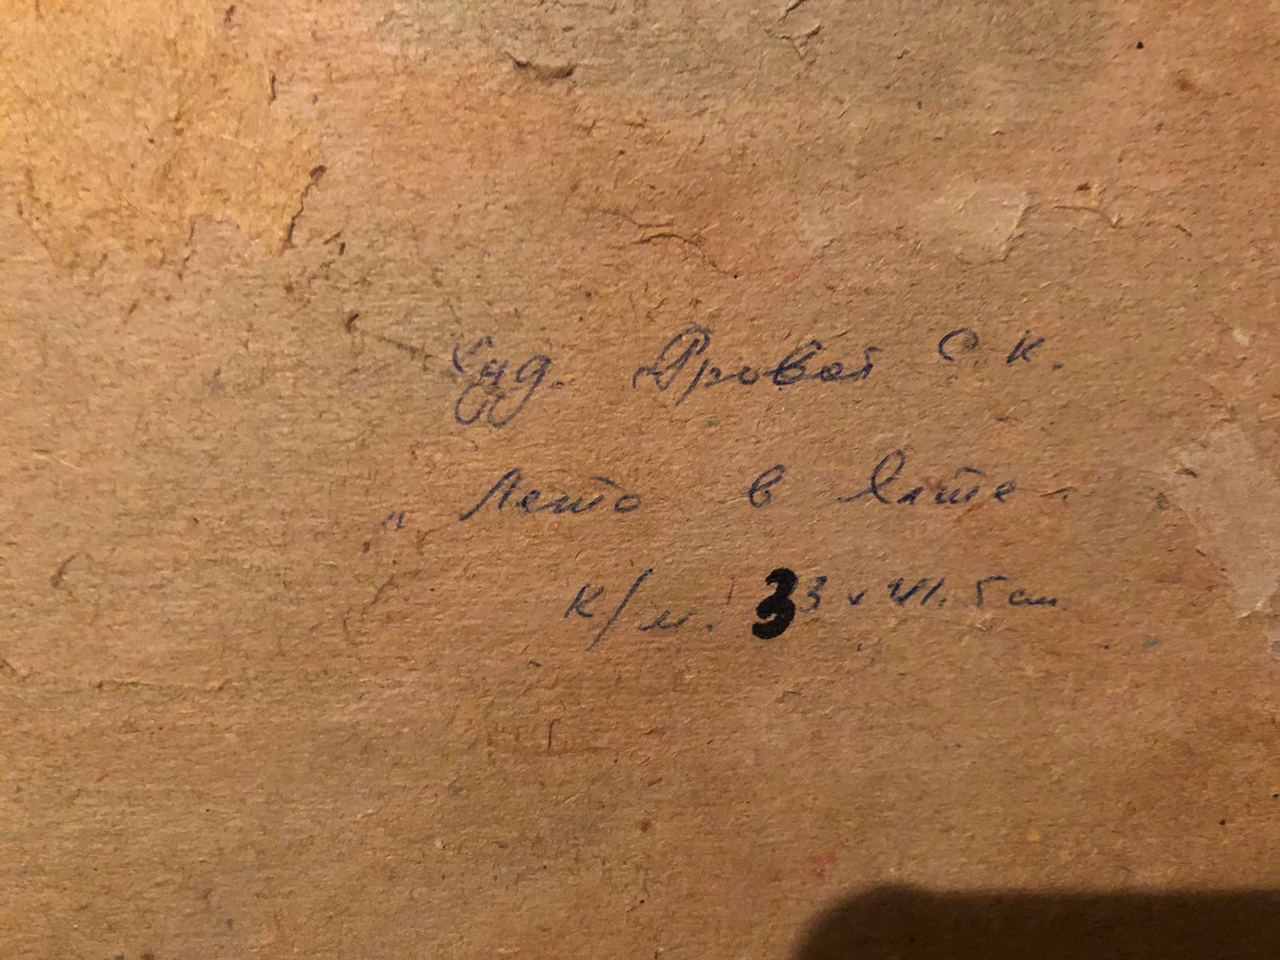 Худ. Яровой С. К.
„ Лето в Ялте
к/м. 33 x 41.5 см